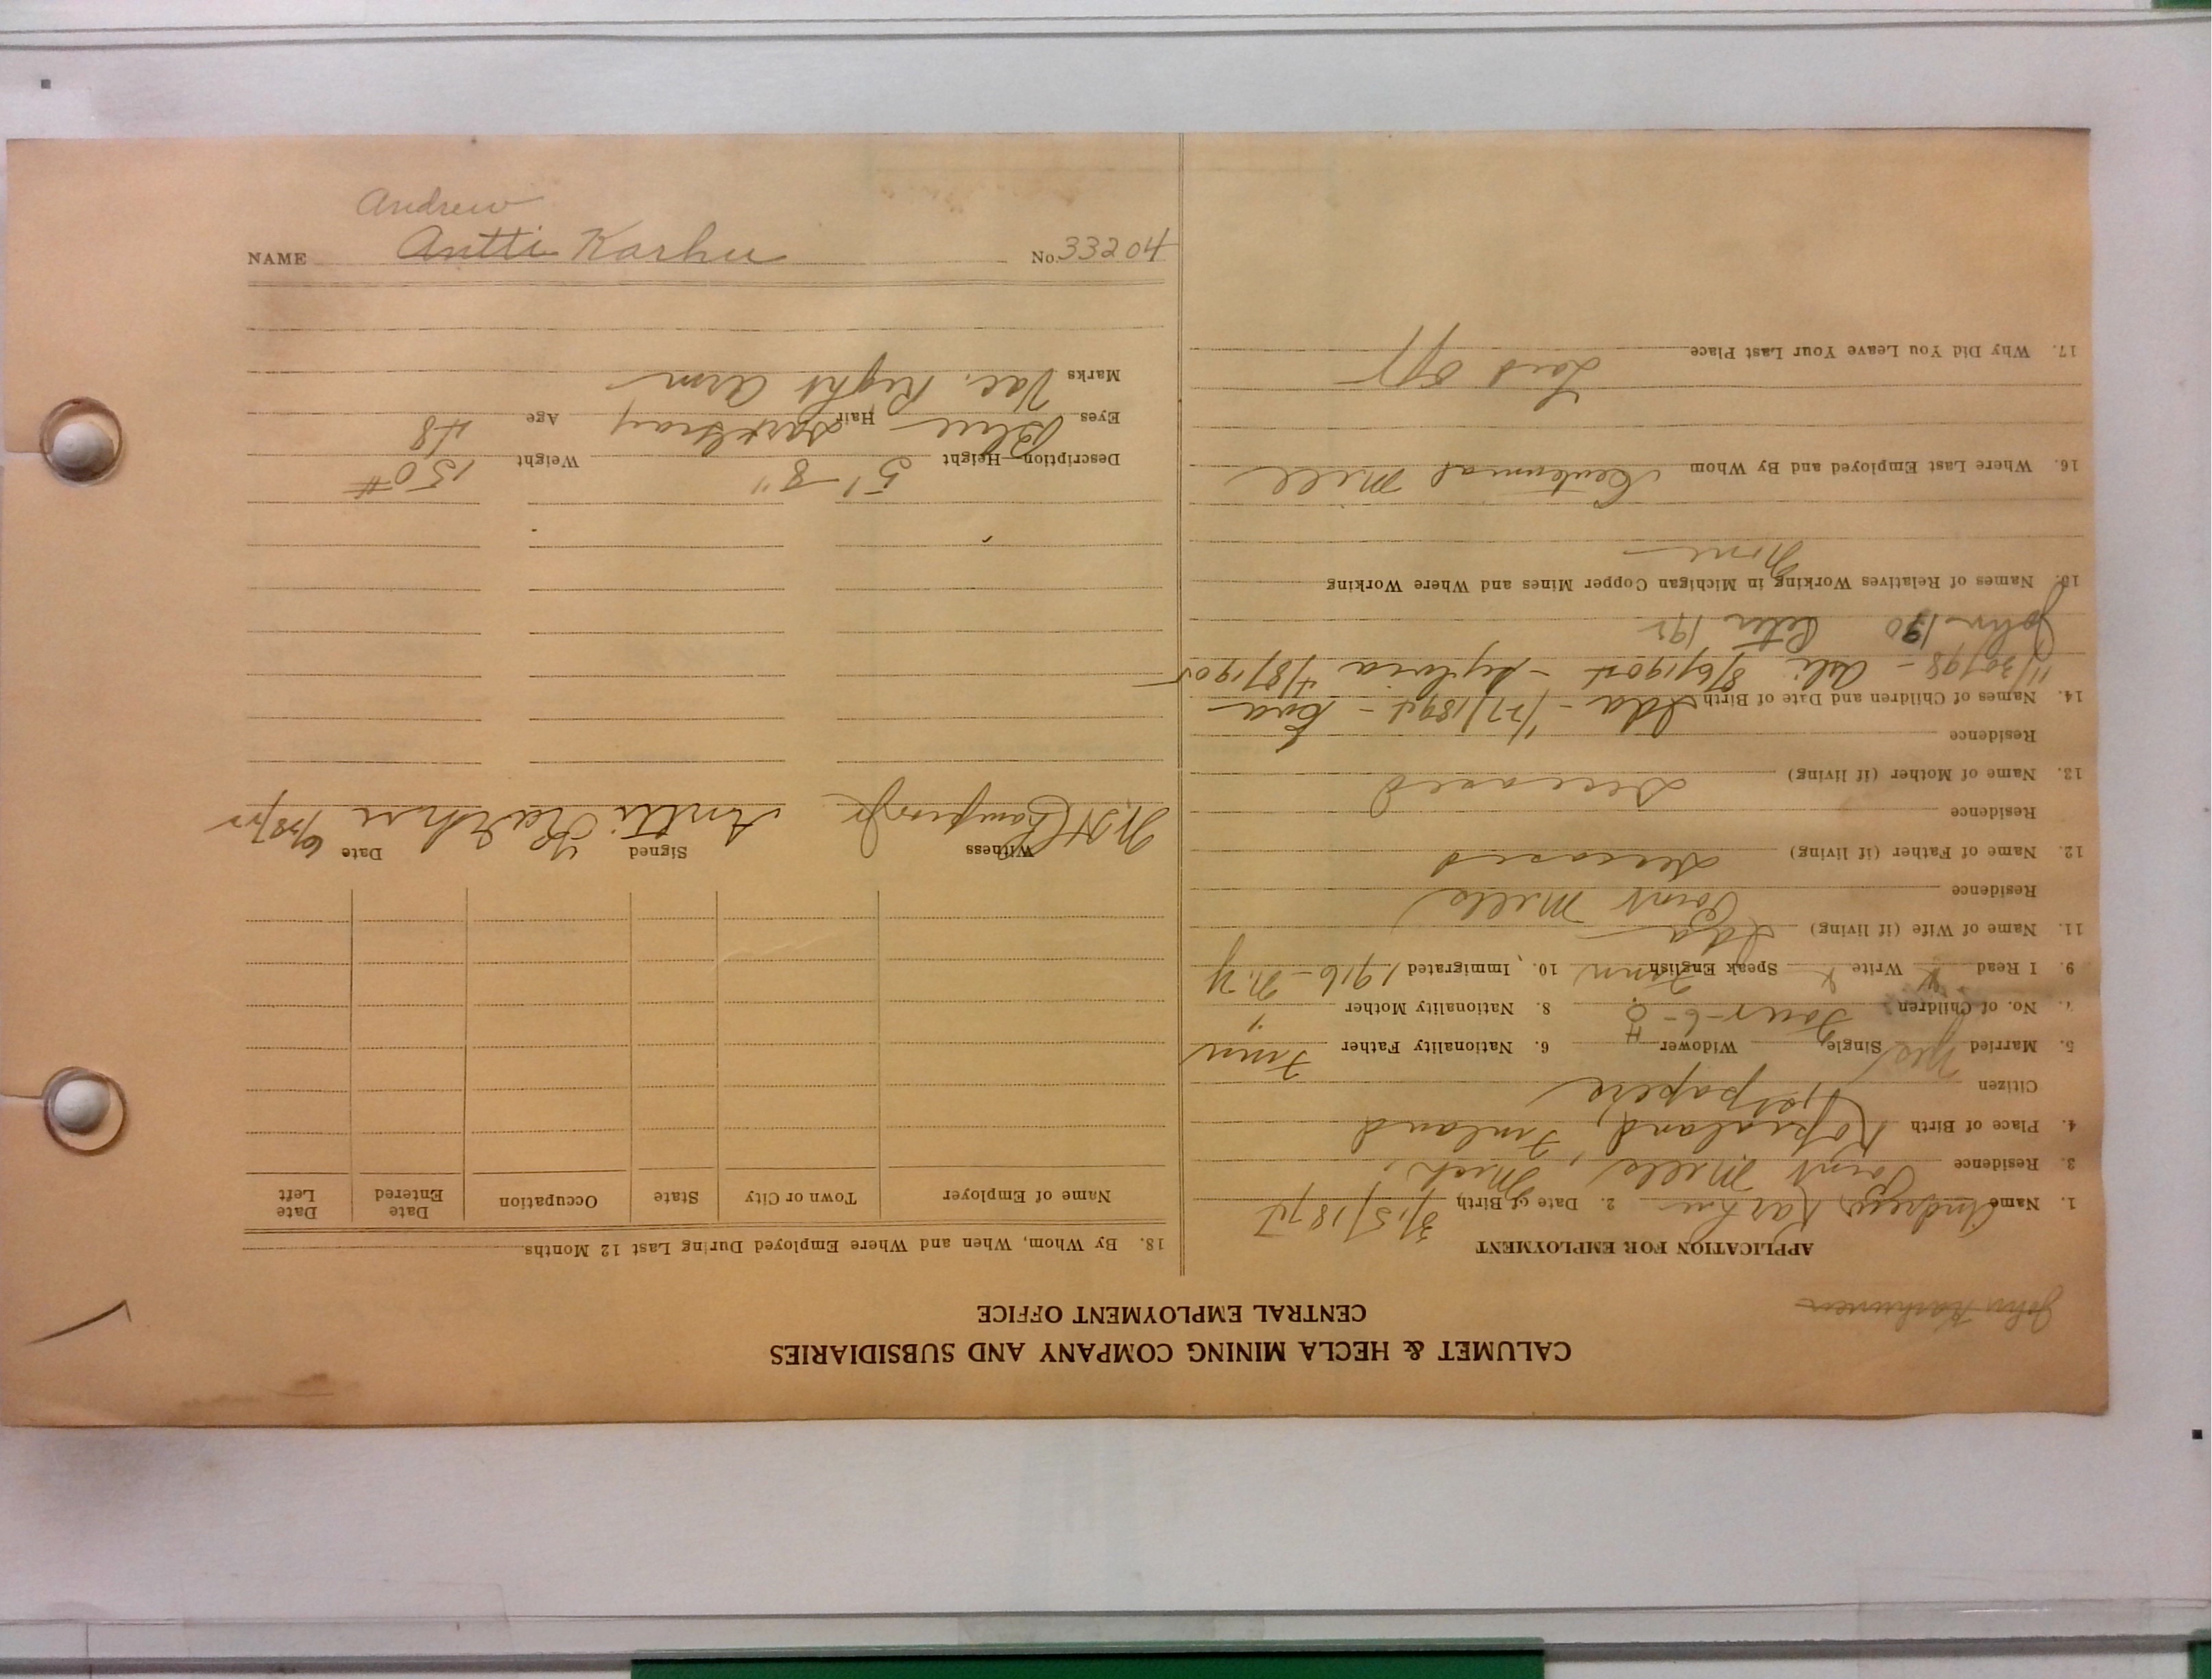 John Karhunen
CALUMET & HECLA MINING COMPANY AND SUBSIDIARIES
CENTRAL EMPLOYMENT OFFICE
APPLICATION FOR EMPLOYMENT
1. Name Andrew Karhu 2. Date of Birth 3/15/1874
3. Residence Point Mills, Mich.
4. Place of Birth Finland
Citizen 1st papers
5. Married Yes Single Widower 6. Nationality Father Finn
7. No. of Children 8. Nationality Mother "
9. I Read x Write x Speak English Finn 10. Immigrated 1916 - N.Y
11. Name of Wife (if living) Ida
Residence Point Mills
12. Name of Father (if living) Deceased
Residence
13. Name of Mother (if living) Deceased
Residence
14. Names of Children and Date of Birth Ida - 1/27/1894 - Eva
11/30/98 - Aili 8/6/1904 - Sylvia 4/8/1905
John 190 Peter 192
15. Names of Relatives Working in Michigan Copper Mines and Where Working
None
16. Where Last Employed and By Whom Centennial Mill
17. Why Did You Leave Your Last Place Laid Off
18. By Whom, When and Where Employed During Last 12 Months
Name of Employer Town or City State Occupation Date Entered Date Left
Witness Signed Date
Antti Karhu 6/28/22
Description—Height 5'-8" Weight 150#
Eyes Blue Hair Dark Gray Age 48
Marks Vac. Right Arm
Andrew
NAME Antti Karhu No. 33204